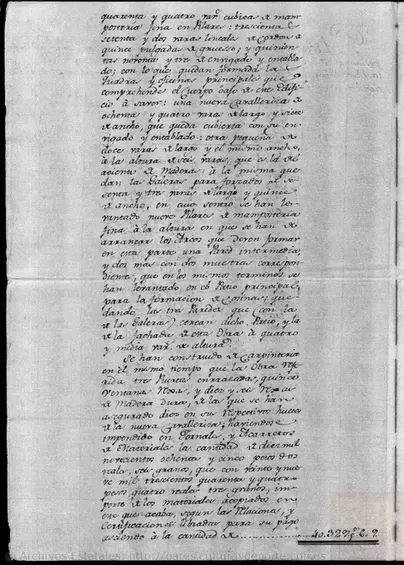 quarenta y quatro var.s cubica de mam
posteria fina en Pilares: trescienta
setenta y dos varas lineales de Cordon de
quince pulgadas de grueso; y quinien
tas noventa y tres de envigado y entabla
do; con lo que quedan formada la
Quadra y oficinas principales que
comprehende el Cuerpo bajo de este Edifi
cio à saver: una nueva Cavalleriza de
ochenta y quatro varas de largo, y siete
de ancho, que queda cubierta con su en
vigado y entablado: otra pequeña de
doce varas de largo y el mismo ancho,
à la altura de seis varas, que es la de
de Madera: à la misma que
dan las Galeras para forzados de se
senta y tres varas de largo y quince
de ancho, en cuio sentro se han le
vantado nueve Pilares de mamposteria
fina à la altura en que se han de
arrancar los Arcos que deven formar
en esta parte una Pared intermedia,
y dos mas con dos muestras correspon
diente, que en los mismos terminos se
han levantado en el Patio principal
para la formacion de Cosinas; que
dando las tres Paredes que (con la
de las Galeras) cercan dicho Patio, y la
de la fachada de esta Obra à quatro
y media var.s de altura.
Se han construido de Carpinteria
en el mismo tiempo que la Obra
tres Puertas enrasadas, quince
Ventana y dies y seis
de Madera dura, de las que se han
asegurado dies en sus respectivos huecos
de la nueva Cavalleriza; haviendose
impendido en Jornales, y Acarreos
de Materiales la cantidad de diez mil
novecientos ochenta y cinco pesos dos
reales, seis granos, que con veinte y nue
ve mil trescientos quarenta y quatro
pesos quatro reales tres granos, im
porte de los materiales acopiados en
que acaba, segun las Relaciones, y
Certificaciones libradas para su pago
asciende à la cantidad de 40.329 p.s 6. 9